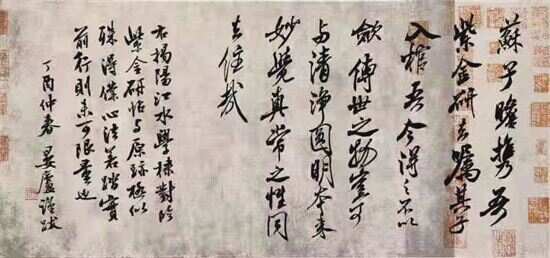 蘇子瞻携吾
紫金研去囑其子
入棺吾今得之不以
斂傳世之物豈可
与清淨圓明本来
妙覺真常之性同
去住哉
右揭陽江水學棣對臨
紫金研帖与原跡極似
殊得心法若踏實
前行則未可限量也
丁酉仲春 廬謹跋